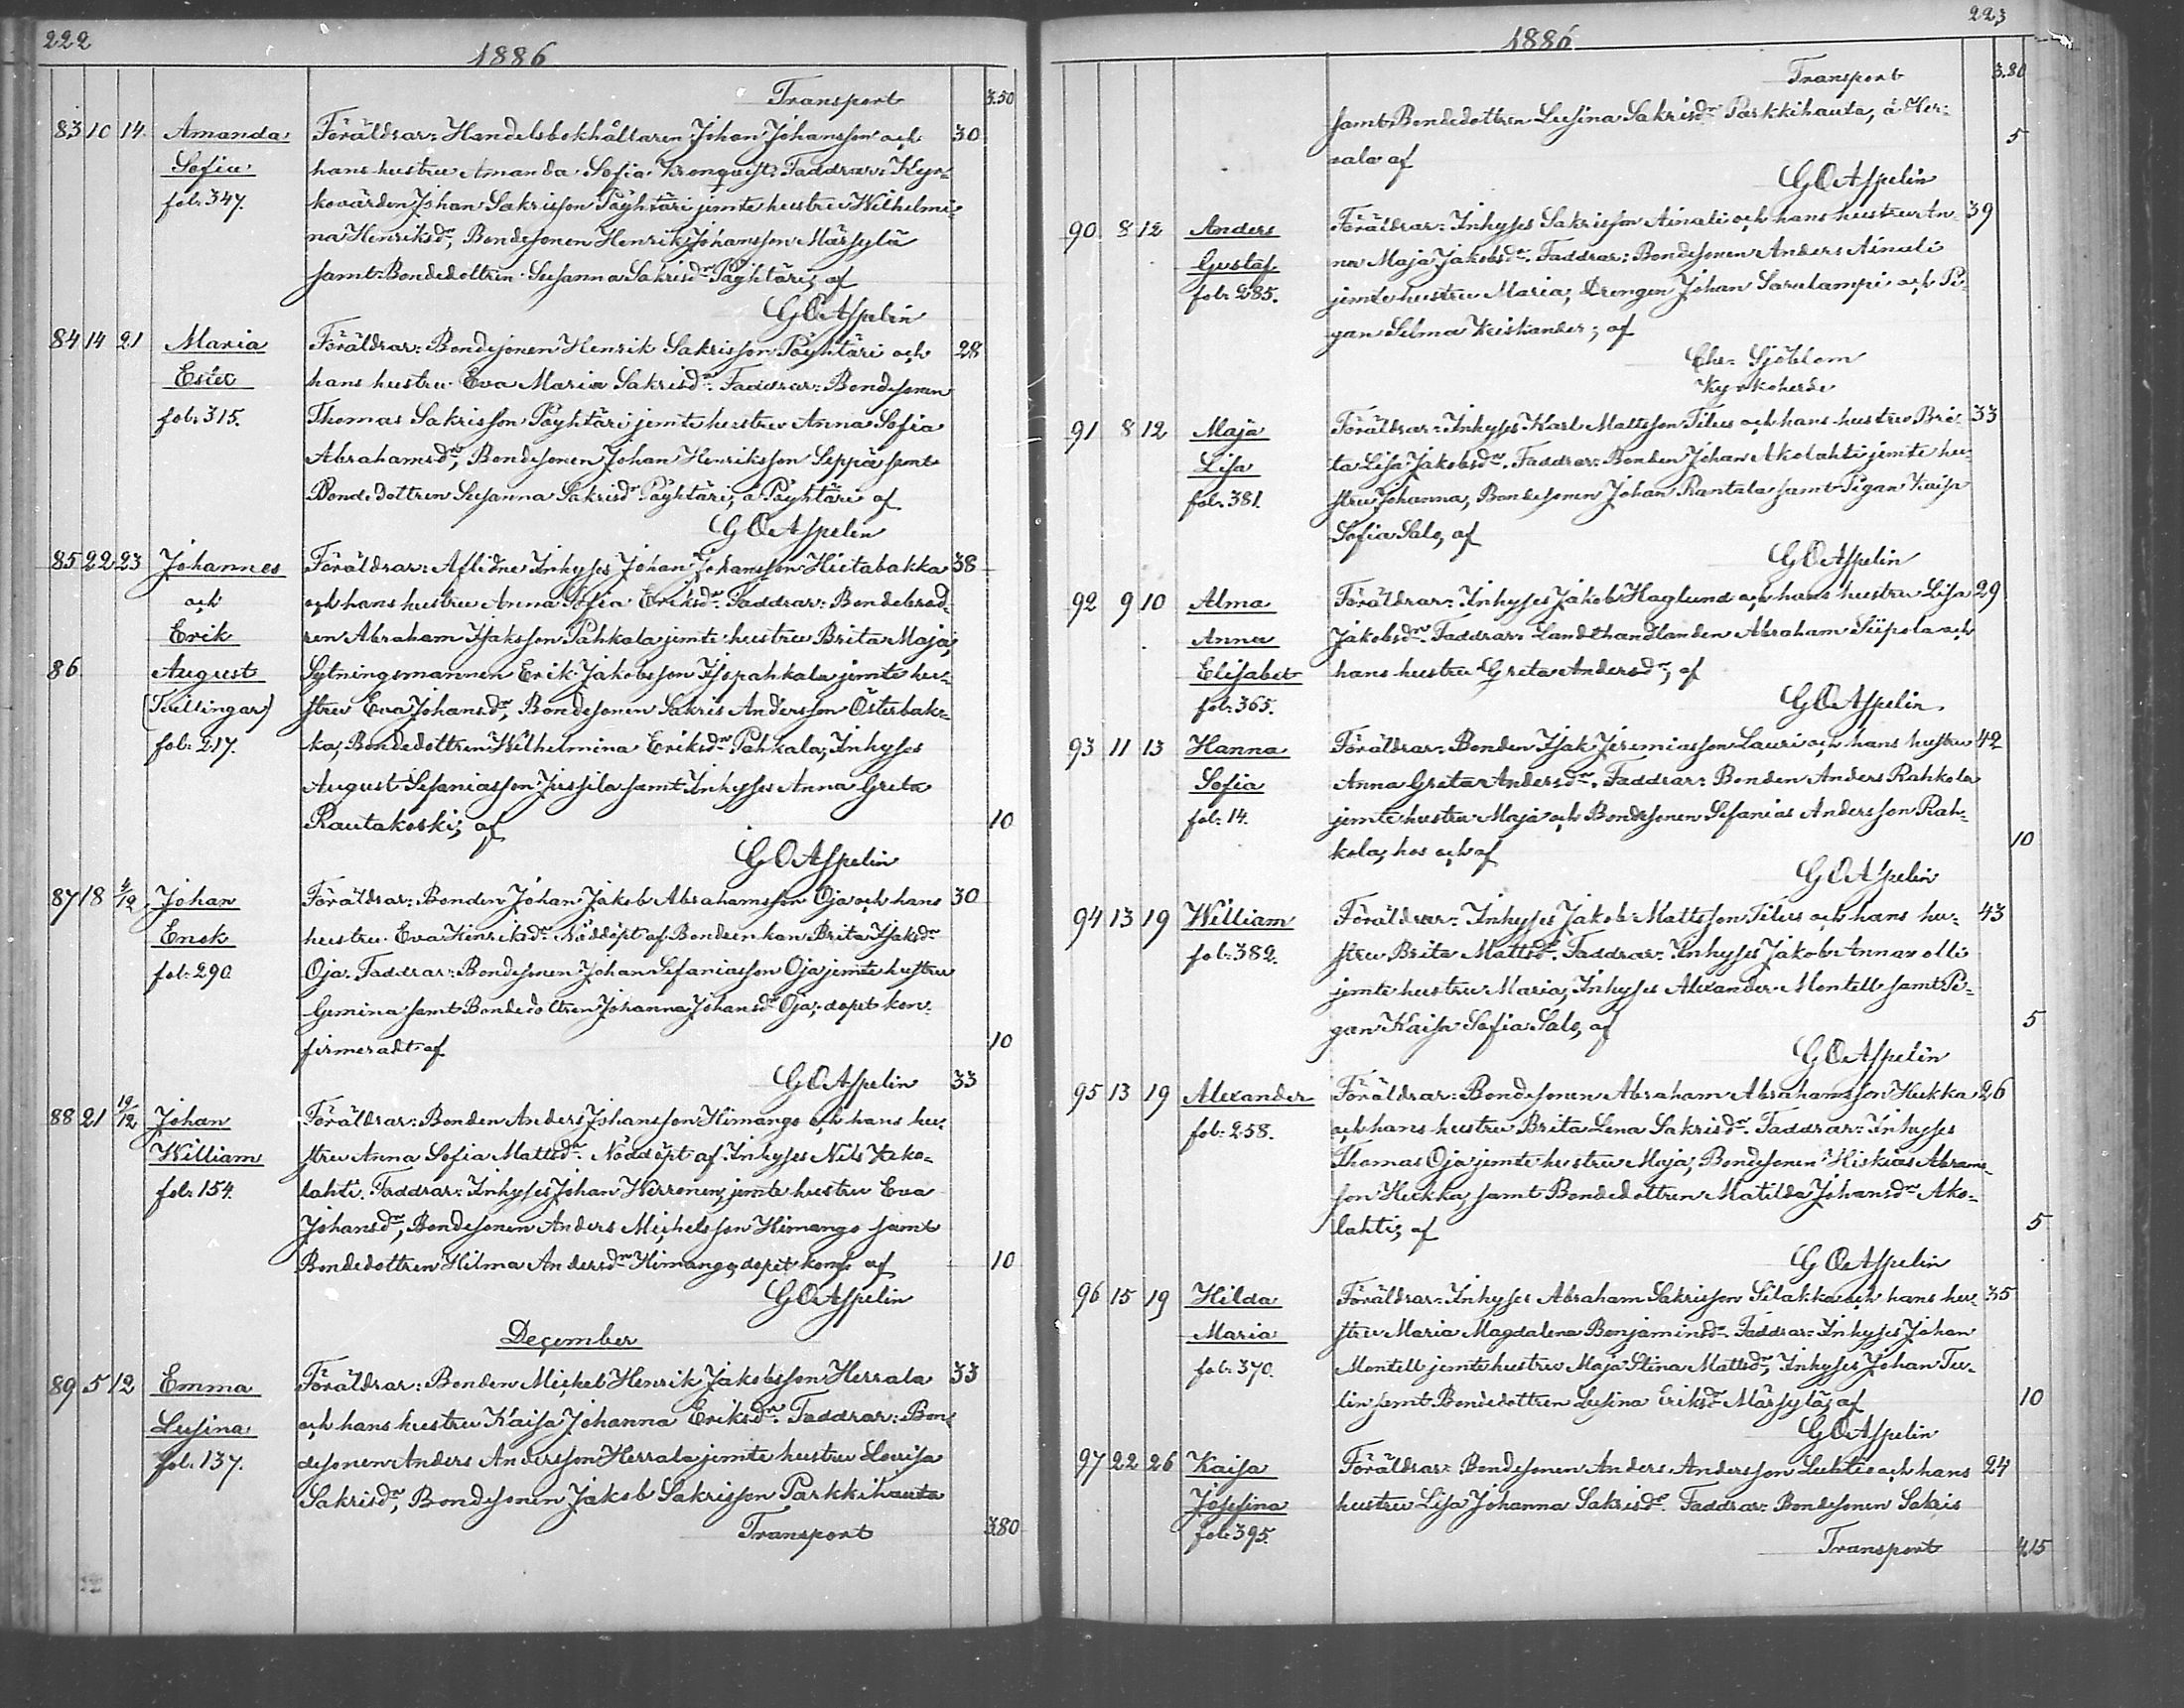 222
1886
Transport 3.50
83 10 14 Amanda Föräldrar: Handelsbokhållaren Johan Johansson och 30
Sofia hans hustru Amanda Sofia Kronqvist. Faddrar: Kyr-
fol. 347. kovärden Johan Sakrisson Pöyhtäri jemte hustru Wilhelmi-
na Henriksdr, Bondesonen Henrik Johansson Märsylä
samt Bondedottren Susanna Sakrisdr Pöyhtäri; af
G O Aspelin
84 14 21 Maria Föräldrar: Bondesonen Henrik Sakrisson Pöyhtäri och 28
Ester hans hustru Eva Maria Sakrisdr. Faddrar: Bondesonen
fol. 315. Thomas Sakrisson Pöyhtäri jemte hustru Anna Sofia
Abrahamsdr, Bondesonen Johan Henriksson Seppä samt
Bondedottren Susanna Sakrisdr Pöyhtäri; å Pöyhtäri af
G O Aspelin
85 22 23 Johannes Föräldrar: Aflidne Inhyses Johan Johansson Hietabakka 38
och och hans hustru Anna Sofia Eriksdr. Faddrar: Bondebrod-
Erik ren Abraham Isaksson Pahkala jemte hustru Brita Maja,
86 August Sytningsmannen Erik Jakobsson Isopahkala jemte hu-
(Tvillingar) stru Eva Johansdr, Bondesonen Sakris Andersson Österbak-
fol. 217. ka, Bondedottren Wilhelmina Eriksdr Pahkala, Inhyses
August Sefaniasson Jussila samt Inhyses Anna Greta
Rautakoski; af 10
G O Aspelin
87 18 4/12 Johan Föräldrar: Bonden Johan Jakob Abrahamsson Oja och hans 30
Enok hustru Eva Henriksdr. Nöddöpt af Bondeenkan Brita Isaksdr
fol. 290 Oja. Faddrar: Bondesonen Johan Sefaniasson Oja jemte hustru
Gemina samt Bondedottren Johanna Johansdr Oja; dopet kon-
firmeradt af 10
G O Aspelin 33
88 21 19/12 Johan Föräldrar: Bonden Anders Johansson Himango och hans hu-
William stru Anna Sofia Mattsdr. Nöddöpt af Inhyses Nils Hako-
fol. 154. lahti. Faddrar: Inhyses Johan Werronen, jemte hustru Eva
Johansdr, Bondesonen Anders Michelsson Himango samt
Bondedottren Hilma Andersdr Himango, dopet konf. af 10
G O Aspelin
December
89 5 12 Emma Föräldrar: Bonden Mickel Henrik Jakobsson Herrala 33
Lusina och hans hustru Kaisa Johanna Eriksdr. Faddrar: Bon-
fol. 137. desonen Anders Andersson Herrala jemte hustru Lovisa
Sakrisdr, Bondesonen Jakob Sakrisson Parkkihauta
Transport 3.80
223
1886
Transport 3.80
samt Bondedottren Lusina Sakrisdr Parkkihauta, å Her-
rala af 5
G O Aspelin
90 8 12 Anders Föräldrar: Inhyses Sakrisson Ainali och hans hustru An- 39
Gustaf na Maja Jakobsdr. Faddrar: Bondesonen Anders Ainali
fol. 285. jemte hustru Maria, Drengen Johan Sarulampi och Pi-
gan Selma Keiskander; af
Chr. Sjöblom
Kyrkoherde
91 8 12 Maja Föräldrar: Inhyses Karl Mattsson Tilus och hans hustru Bri- 33
Lisa ta Lisa Jakobsdr. Faddrar: Bonden Johan Akolahti jemte hu-
fol. 381. stru Johanna, Bondesonen Johan Rantala samt Pigan Kaisa
Sofia Salo, af
G O Aspelin
92 9 10 Alma Föräldrar: Inhyses Jakob Haglund och hans hustru Lisa 29
Anna Jakobsdr. Faddrar: Landthandlanden Abraham Siipola och
Elisabet hans hustru Greta Andersdr; af
fol. 365. G O Aspelin.
93 11 13 Hanna Föräldrar: Bonden Isak Jeremiasson Lauri och hans hustru 42
Sofia Anna Greta Andersdr. Faddrar: Bonden Anders Rahkola
fol. 14. jemte hustru Maja och Bondesonen Sefanias Andersson Rah-
kola, hos och af 10
G O Aspelin
94 13 19 William Föräldrar: Inhyses Jakob Mattsson Tilus och hans hu- 43
fol. 382. stru Brita Mattsdr. Faddrar: Inhyses Jakob Annanolli
jemte hustru Maria, Inhyses Alexander Montell samt Pi-
gan Kaisa Sofia Salo, af 5
G O Aspelin
95 13 19 Alexander Föräldrar: Bondesonen Abraham Abrahamsson Hukka 26
fol. 258. och hans hustru Brita Lena Sakrisdr. Faddrar: Inhyses
Thomas Oja jemte hustru Maja, Bondesonen Hiskias Abrams-
son Hukka, samt Bondedottren Matilda Johansdr Ako-
lahti; af 5
G O Aspelin
96 15 19 Hilda Föräldrar: Inhyses Abraham Sakrisson Silakka och hans hu- 35
Maria stru Maria Magdalena Benjaminsdr. Faddrar: Inhyses Johan
fol. 370. Montell jemte hustru Maja Stina Mattsdr, Inhyses Johan Tu-
lin samt Bondedottren Lusina Eriksdr Märsylä; af 10
G O Aspelin
97 22 26 Kaisa Föräldrar: Bondesonen Anders Andersson Luhtis och hans 24
Josefina hustru Lisa Johanna Sakrisdr. Faddrar: Bondesonen Sakris
fol. 395. Transport 4.15